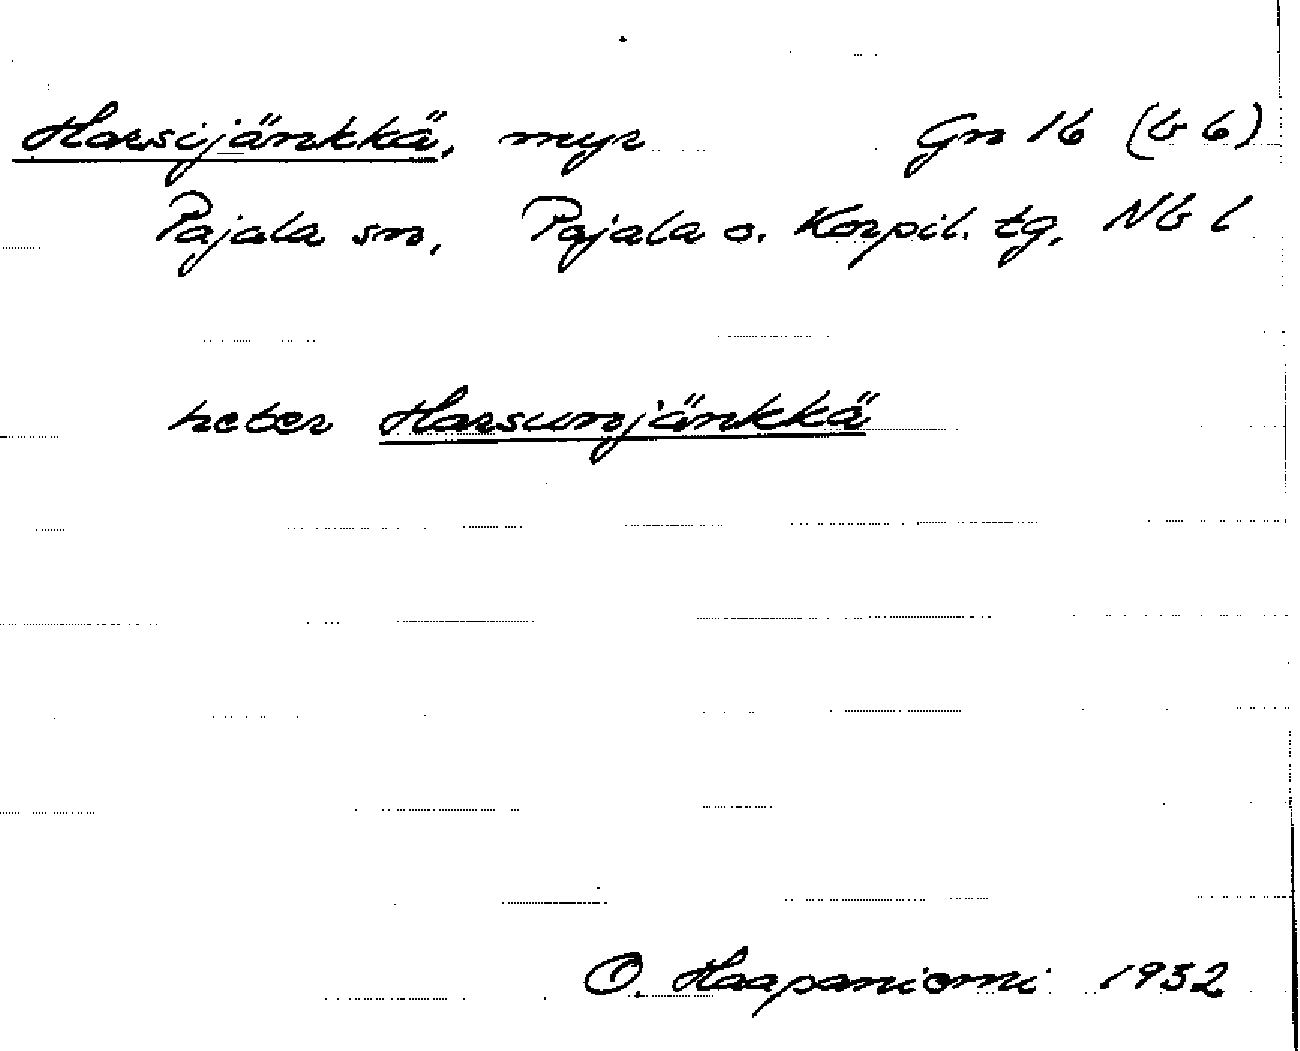 Harsijänkkä, myr Gn 16 (b 6)
Pajala sn, Pajala o. Korpil. tg, Nb l
heter Harsunjänkkä
O. Haapaniemi 1932